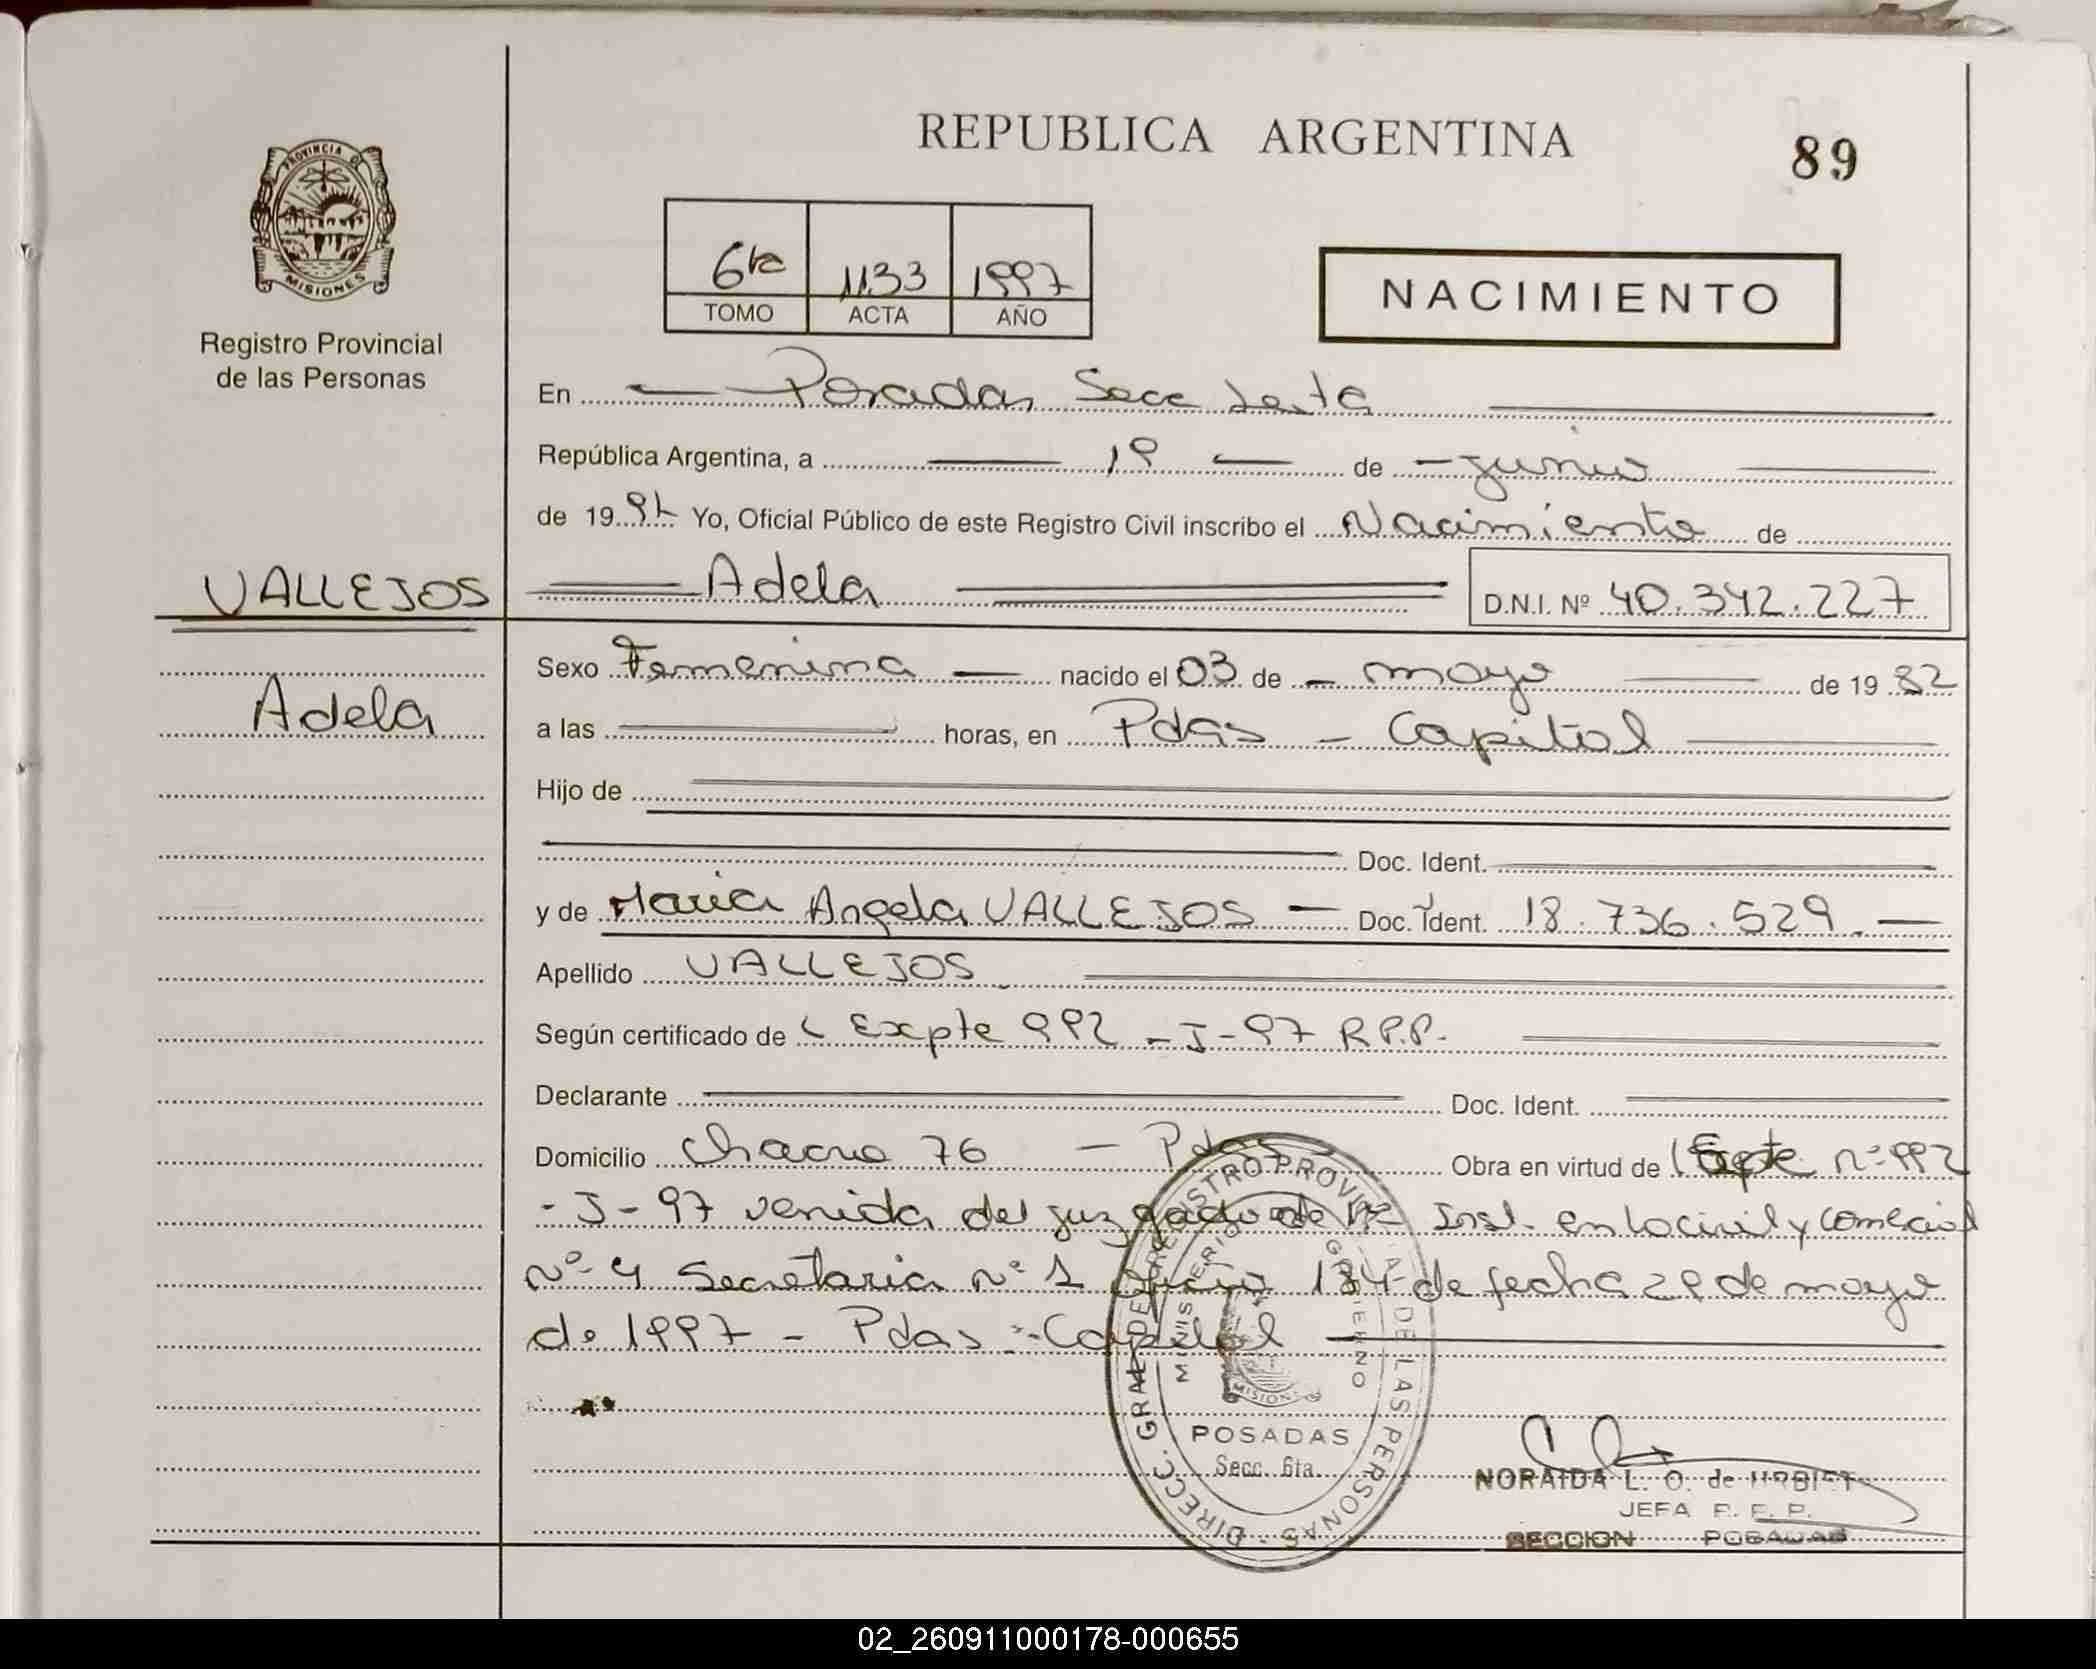 REPUBLICA ARGENTINA
89
PROVINCIA D
MISIONES
Registro Provincial
de las Personas
6ta 1133 1997
TOMO ACTA AÑO
NACIMIENTO
En Posadas Secc Sexta
República Argentina, a 19 de junio
de 1997 Yo, Oficial Público de este Registro Civil inscribo el Nacimiento de
VALLEJOS Adela D.N.I. Nº 40.342.227
Sexo Femenina nacido el 03 de mayo de 1982
Adela
a las horas, en Pdas - Capital
Hijo de
Doc. Ident.
y de Maria Angela VALLEJOS Doc. Ident. 18.736.529.
Apellido VALLEJOS
Según certificado de Expte 992 - J - 97 R.P.P.
Declarante Doc. Ident.
Domicilio Chacra 76 - Pdas Obra en virtud de Expte nº 992
- J - 97 venida del juzgado de 1ra Inst. en lo civil y comercial
nº 4 Secretaria nº 1 Oficio 184 de fecha 29 de mayo
de 1997 - Pdas - Capital
DIRECC. GRAL DEL REGISTRO PROVINCIAL DE LAS PERSONAS
MINISTERIO GOBIERNO
MISIONES
POSADAS
Secc. 6ta.
NORAIDA L. O. de
JEFA
SECCION POSADAS
02_260911000178-000655